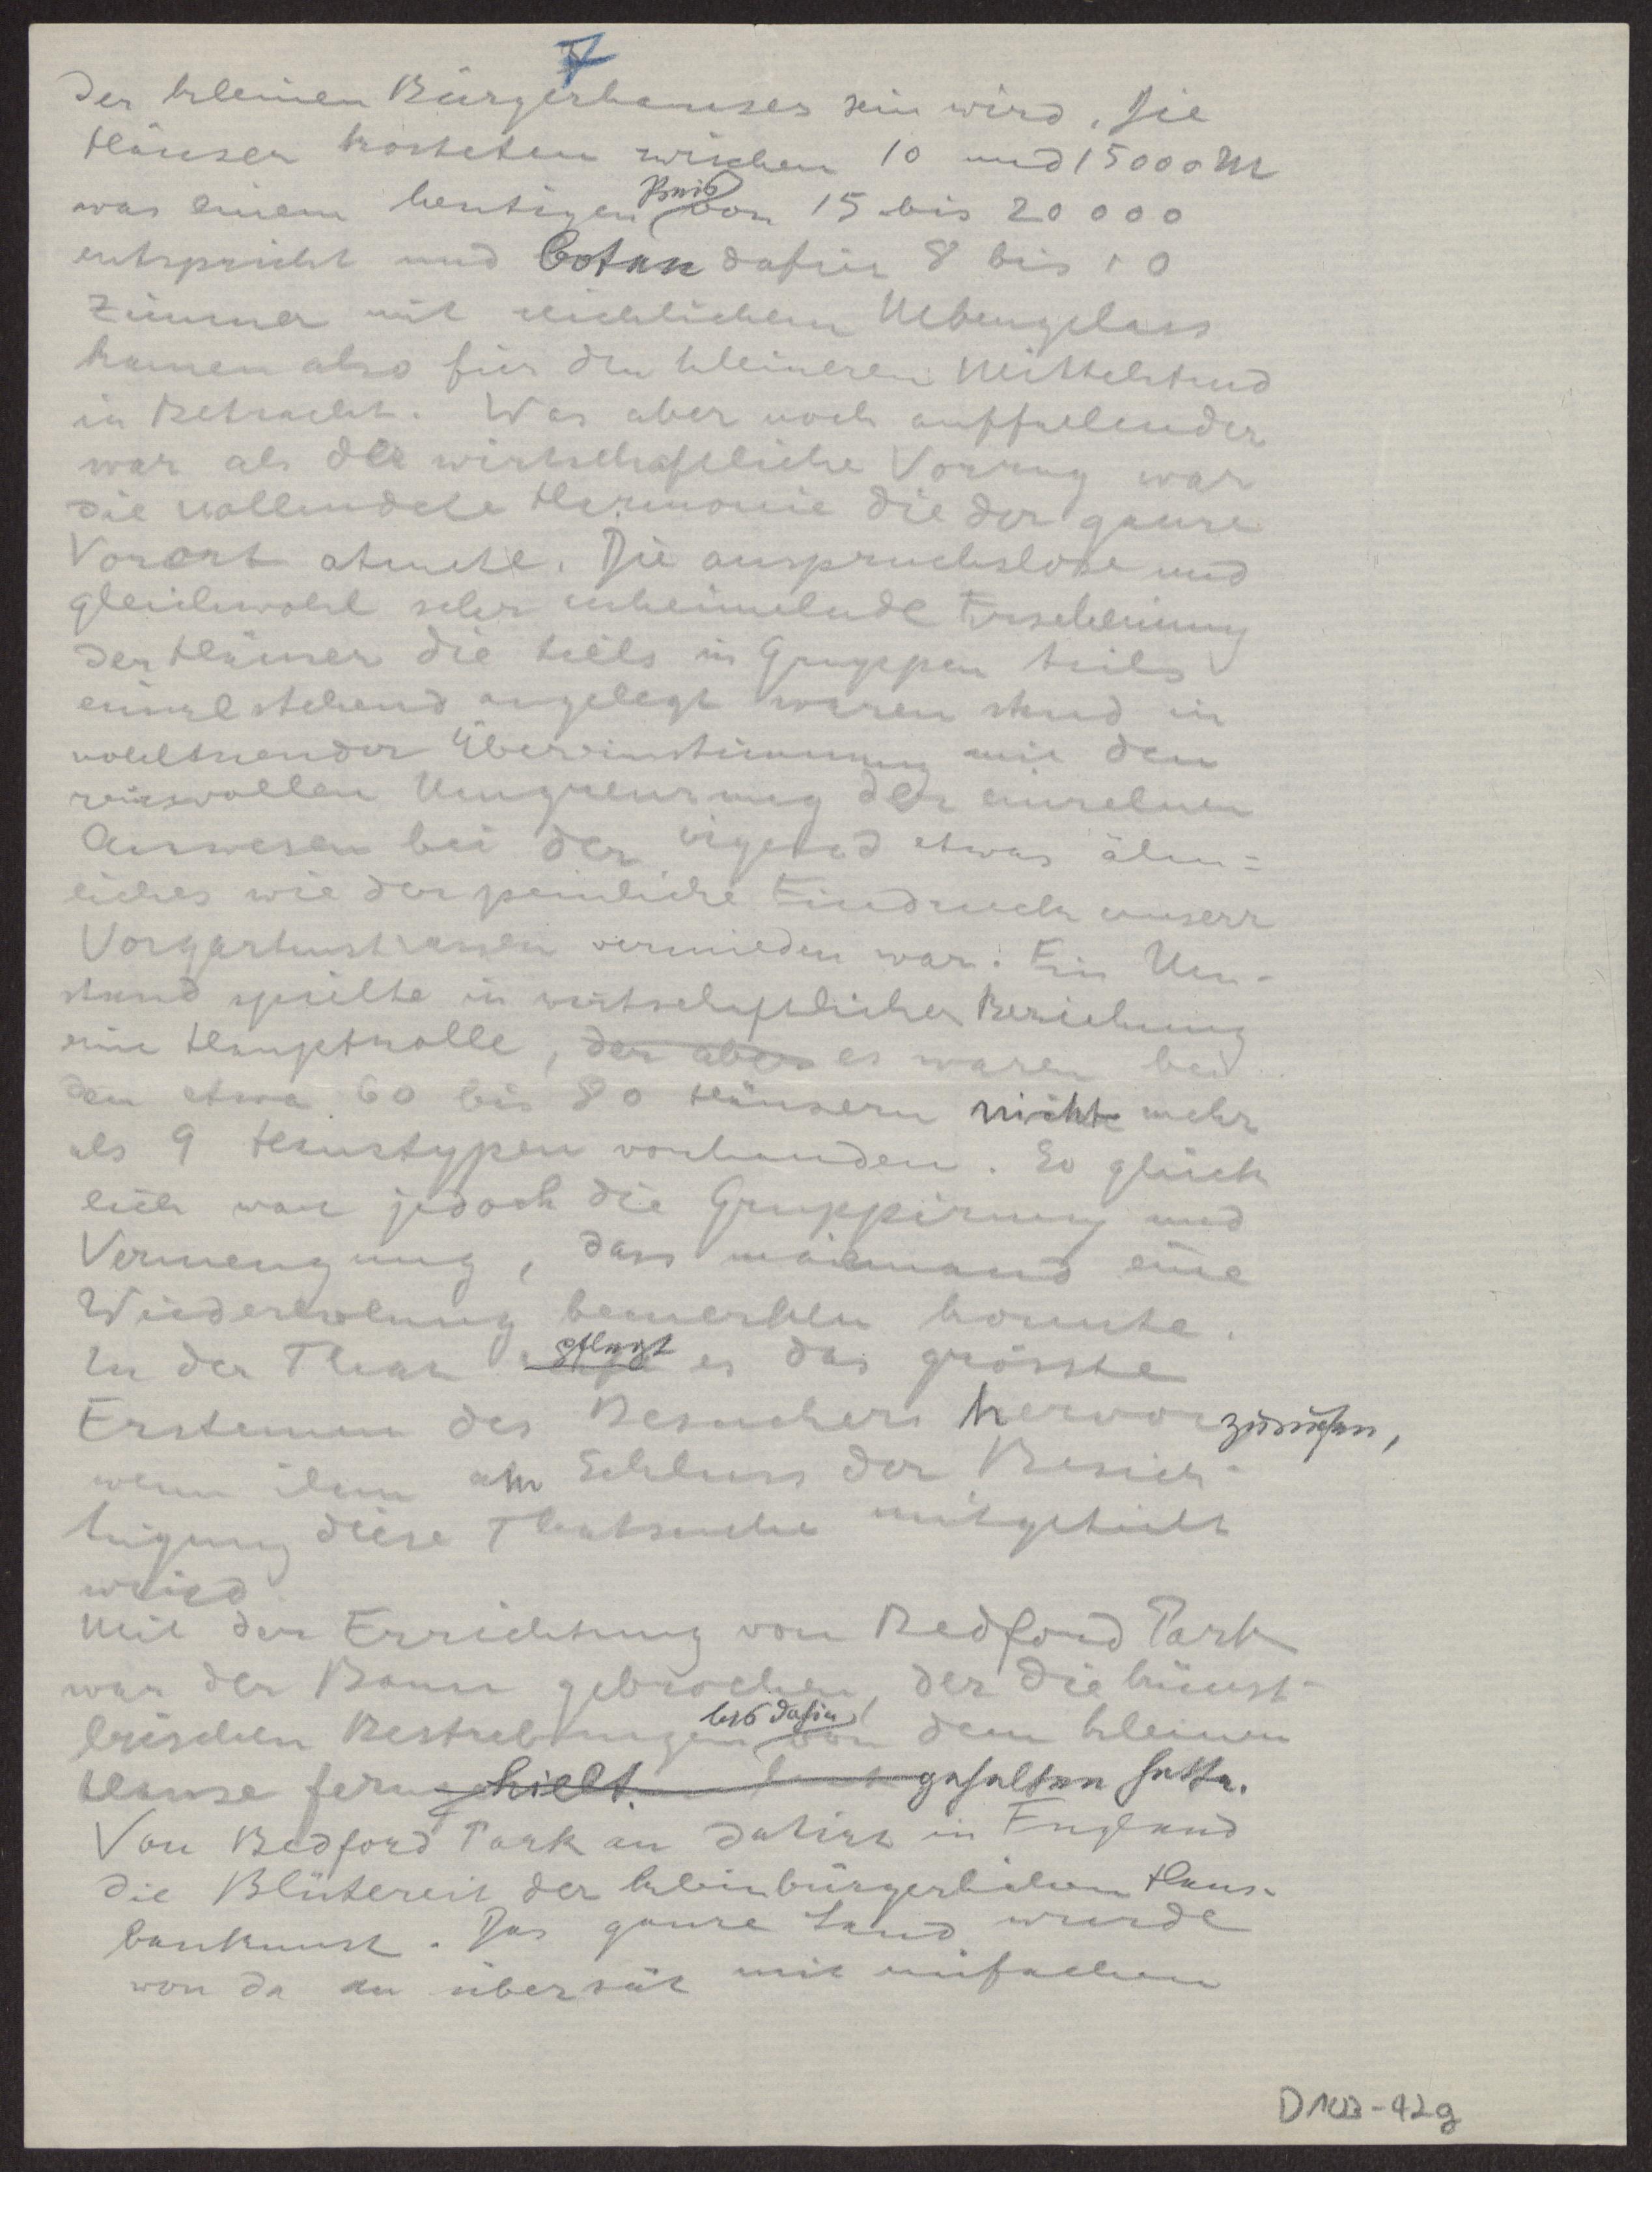 7
der kleinen Bürgerhauses sein wird. Die
Häuser kosteten zwischen 10 und 15000 M
was einem heutigen Preis von 15 bis 20000
entspricht und boten dafür 8 bis 10
Zimmer mit reichlichem Nebengelass
kamen also für den kleineren Mittelstand
in Betracht. Was aber noch auffallender
war als der wirtschaftliche Vorzug war
die vollendete Harmonie die der ganze
Vorort atmete. Die anspruchslose und
gleichwohl sehr anheimelnde Erscheinung
der Häuser die teils in Gruppen teils
einzelstehend angelegt waren stand in
wohltuender Übereinstimmung mit den
reizvollen Umgrenzung der einzelnen
Anwesen bei der irgend etwas ähn=
liches wie der peinliche Eindruck unserer
Vorgartenstrassen vermieden war. Ein Um-
stand spielte in wirtschaftlicher Beziehung
eine Hauptrolle, der aber es waren bei
den etwa 60 bis 80 Häusern nicht mehr
als 9 Haustypen vorhanden. So glück
lich war jedoch die Gruppirung und
Vermengung, dass niemand eine
Wiederholung bemerken konnte.
In der That pflegt es das grösste
Erstaunen des Besuchers hervorzurufen,
wenn ihm am Schluss der Besich-
tigung diese Thatsache mitgeteilt
wird
Mit der Errichtung von Bedford Park
war der Bann gebrochen, der die künst-
lerischen Bestrebungen bis dahin von dem kleinen
Hause fern hielt. gehalten hatte.
Von Bedford Park an datirt in England
die Blütezeit der kleinbürgerlichen Haus-
baukunst. Das ganze Land wurde
von da an übersät mit einfachen
D103-42g